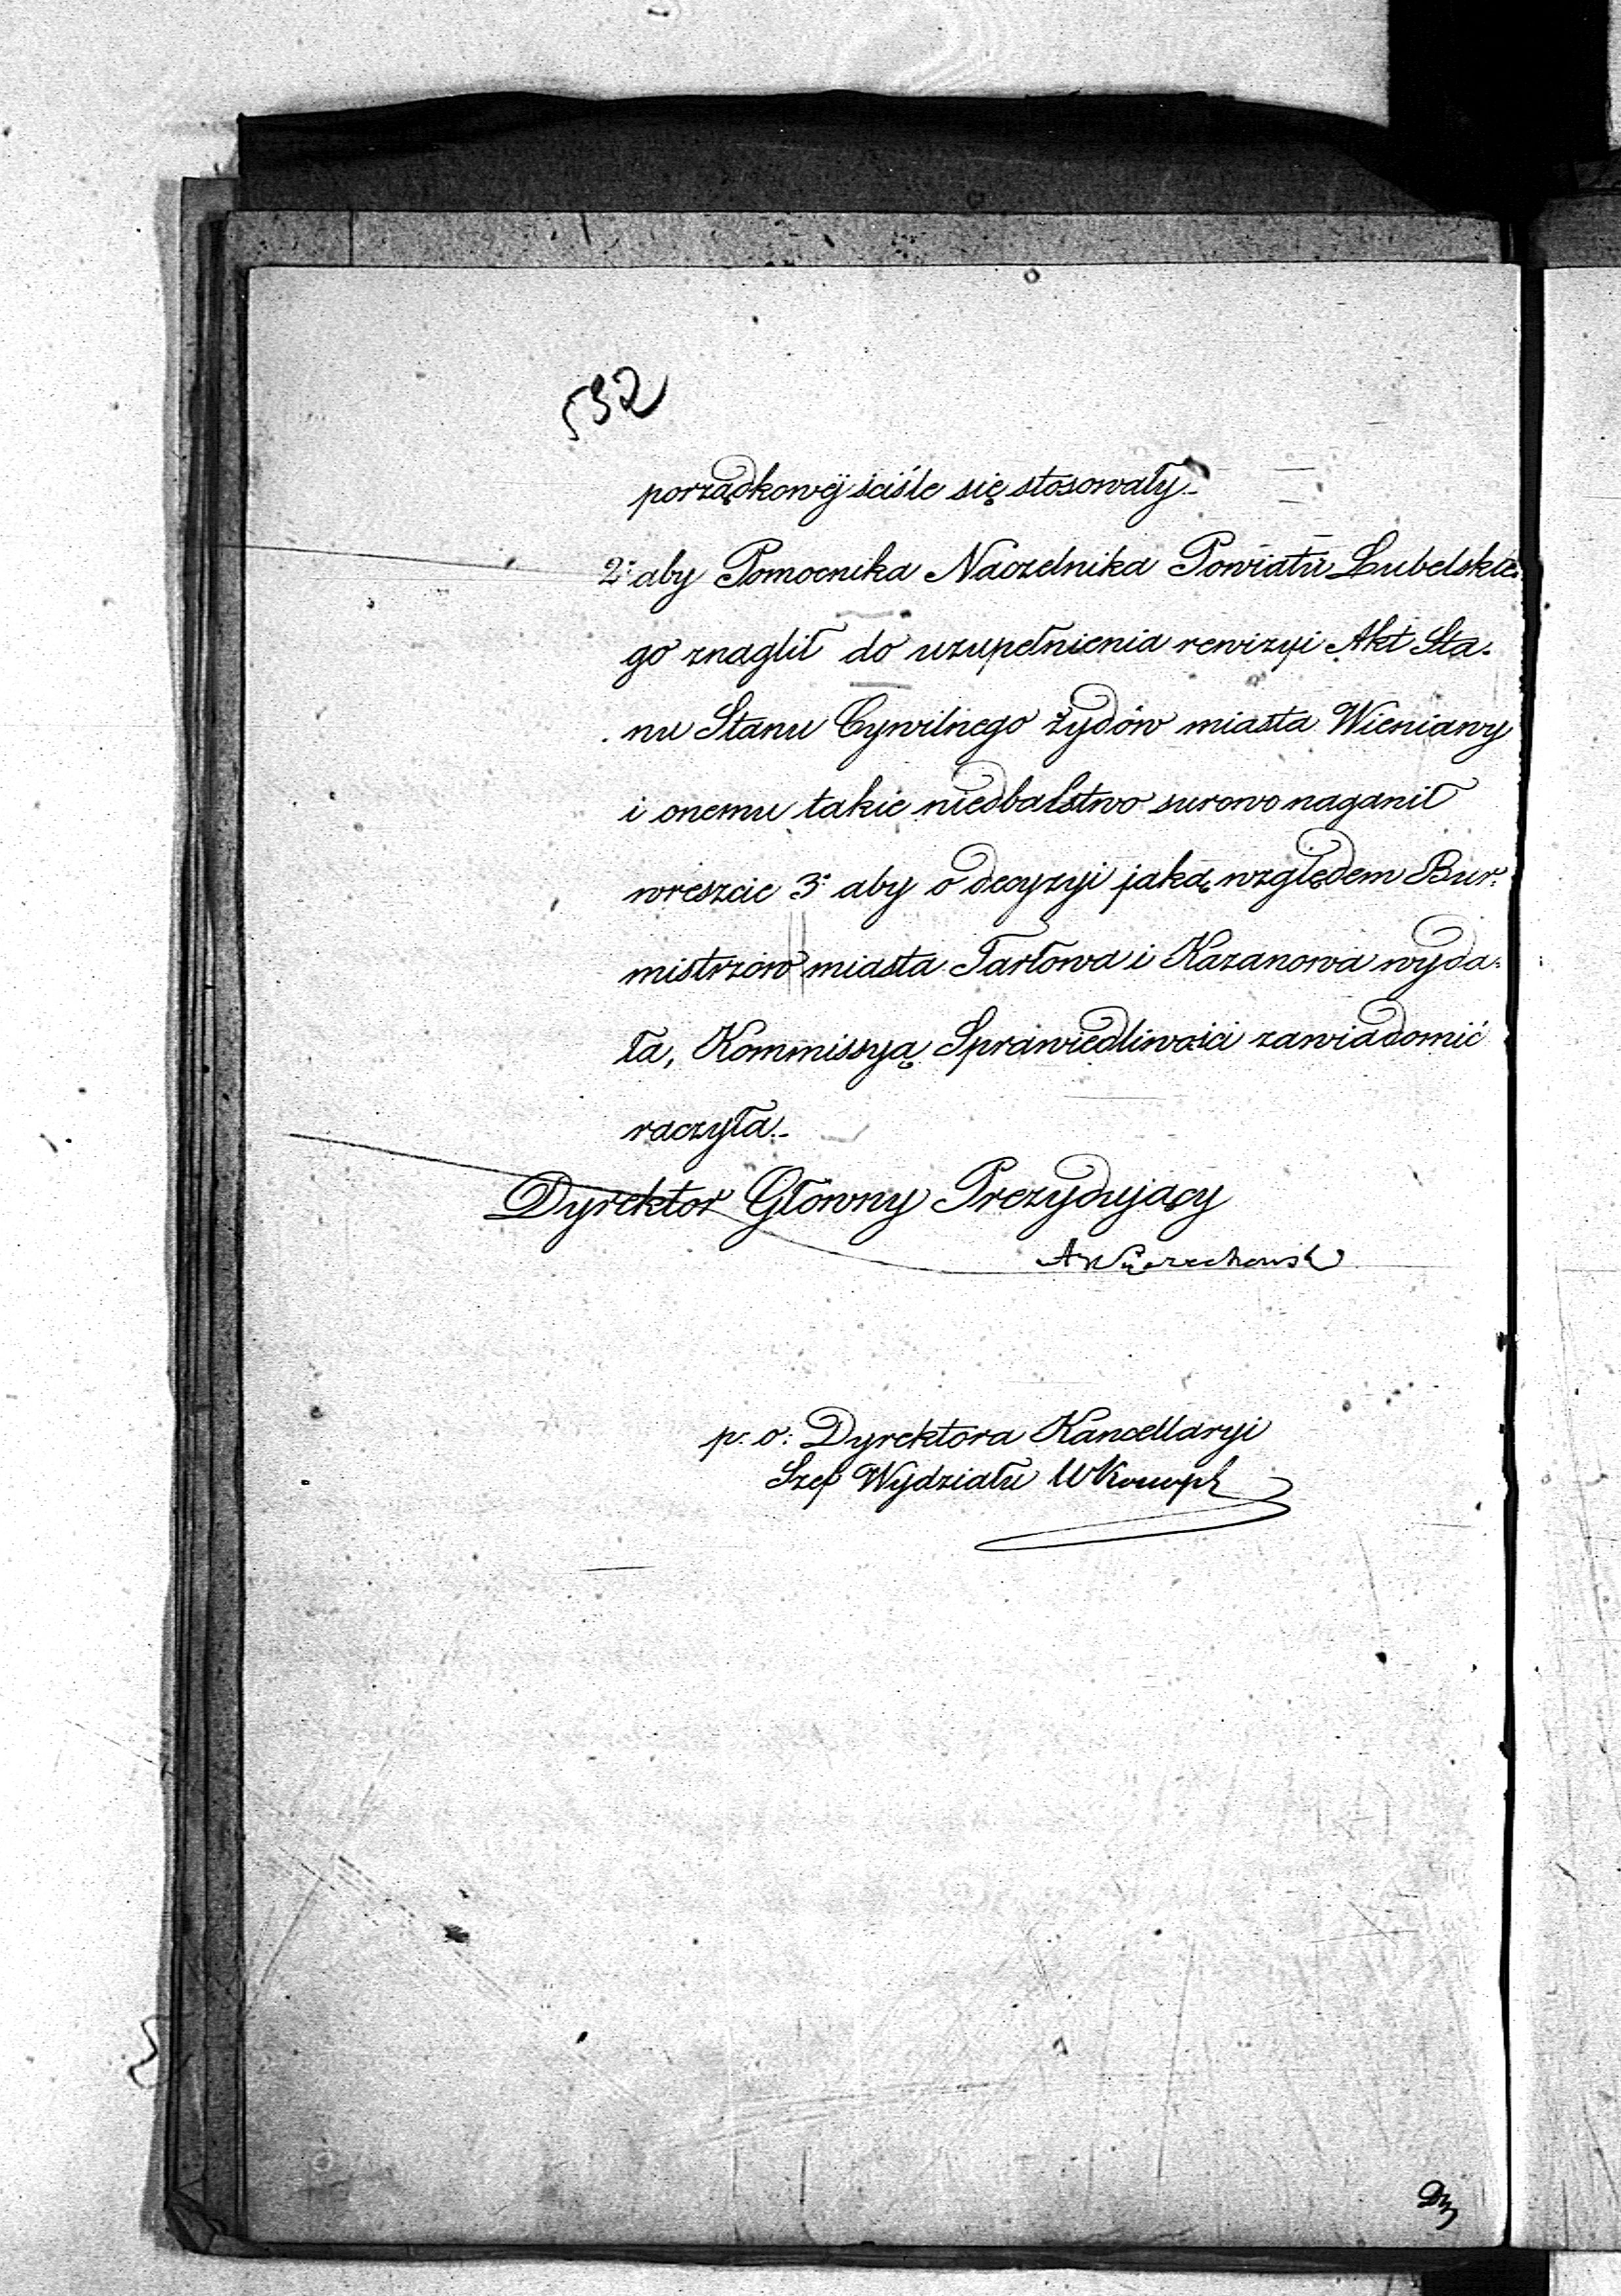 532
porządkowéj ściśle się stosowały._
2º aby Pomocnika Naczelnika Powiatu Lubelskie-
go znaglił do uzupełnienia rewizyi Akt Sta-
nu Stanu Cywilnego żydów miasta Wieniawy
i onemu takie niedbalstwo surowo naganił
wreszcie 3º aby o decyzyi jaką względem Bur-
mistrzów miasta Tarłowa i Kazanowa wyda-
ła, Kommissyą Sprawiedliwości zawiadomić
raczyła._
Dyrektor Główny Prezydujący
p. o: Dyrektora Kancellaryi
Szef Wydziału